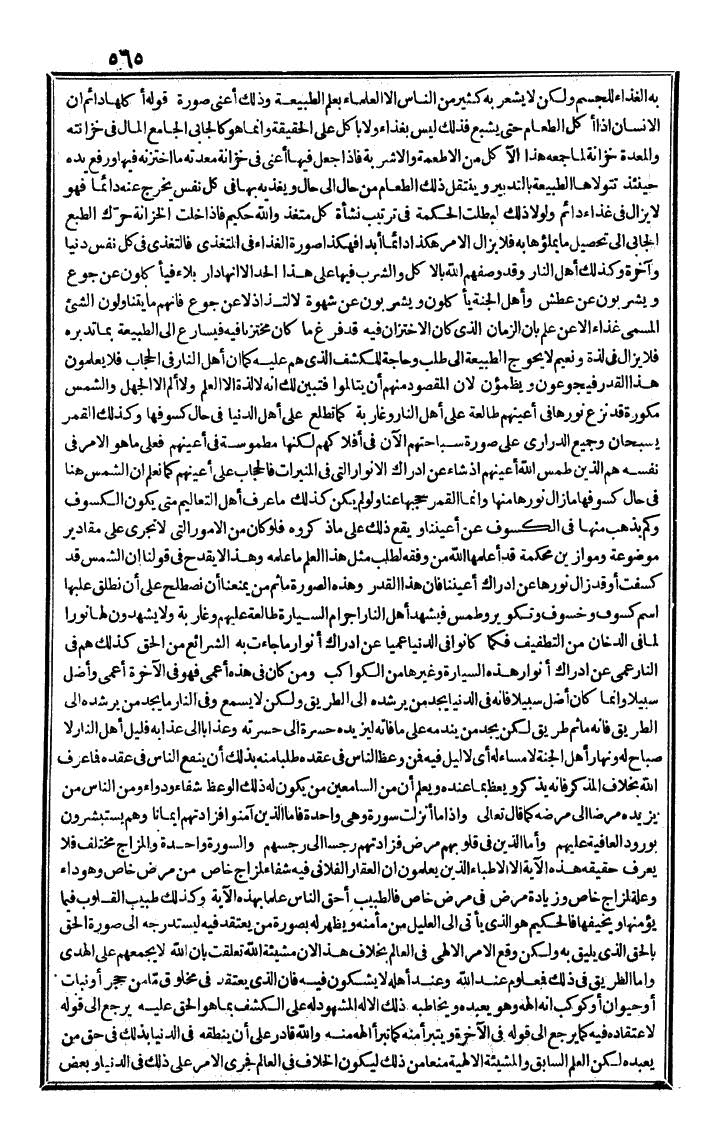 ٥٦٥
به الغذاء للجسم ولكن لا يشعر به كثير من الناس الا العلماء بعلم الطبيعة وذلك أعنى صورة قوله أكلها دائم ان
الانسان اذا أكل الطعام حتى يشبع فذلك ليس بغذاء ولا بأكل على الحقيقة وانما هو كالجابى الجامع المال فى خزانته
والمعدة خزانة لما جمعه هذا الآكل من الاطعمة والاشربة فاذا جعل فيها أعنى فى خزانة معدته ما اختزنه فيها ورفع يده
حينئذ تتولاها الطبيعة بالتدبير وينتقل ذلك الطعام من حال الى حال ويغذيه بها فى كل نفس يخرج عنه دائما فهو
لا يزال فى غذاء دائم ولولا ذلك لبطلت الحكمة فى ترتيب نشأة كل متغذ والله حكيم فاذا خلت الخزانة حرّك الطبع
الجابى الى تحصيل ما يملؤها به فلا يزال الامر هكذا دائما أبدا فهكذا صورة الغذاء فى المتغذى فالتغذى فى كل نفس دنيا
وآخرة وكذلك أهل النار وقد وصفهم الله بالاكل والشرب فيها على هذا الحد الا انها دار بلاء فيأكلون عن جوع
ويشربون عن عطش وأهل الجنة يأكلون ويشربون عن شهوة لالتذاذ لا عن جوع فانهم ما يتناولون الشئ
المسمى غذاء الا عن علم بان الزمان الذى كان الاختزان فيه قد فرغ ما كان مختزنا فيه فيسارع الى الطبيعة بما تدبره
فلا يزال فى لذة ونعيم لا يحوج الطبيعة الى طلب وحاجة للكشف الذى هم عليه كما ان أهل النار فى الحجاب فلا يعلمون
هذا القدر فيجوعون ويظمؤن لان المقصود منهم أن يتألموا فتبين لك انه لا لذة الا العلم ولا ألم الا الجهل والشمس
مكورة قد نزع نورها فى أعينهم طالعة على أهل النار وغاربة كما تطلع على أهل الدنيا فى حال كسوفها وكذلك القمر
يسبحان وجميع الدرارى على صورة سباحتهم الآن فى أفلاكهم لكنها مطموسة فى أعينهم فعلى ما هو الامر فى
نفسه هم الذين طمس الله أعينهم اذ شاء عن ادراك الانوار التى فى المنيرات فالحجاب على أعينهم كما نعلم ان الشمس هنا
فى حال كسوفها ما زال نورها منها وانما القمر حجبها عنا ولو لم يكن كذلك ما عرف أهل التعاليم متى يكون الكسوف
وكم يذهب منها فى الكسوف عن أعيننا ويقع ذلك على ما ذكروه فلو كان من الامور التى لا تجرى على مقادير
موضوعة وموازين محكمة قد أعلمها الله من وفقه لطلب مثل هذا العلم ما علمه وهذا لا يقدح فى قولنا ان الشمس قد
كسفت أو قد زال نورها عن ادراك أعيننا فان هذا القدر وهذه الصورة ما ثم من يمنعنا أن نصطلح على أن نطلق عليها
اسم كسوف وخسوف وتكوير وطمس فيشهد أهل النار اجرام السيارة طالعة عليهم وغاربة ولا يشهدون لها نورا
لما فى الدخان من التطفيف فكما كانوا فى الدنيا عميا عن ادراك أنوار ما جاءت به الشرائع من الحق كذلك هم فى
النار عمى عن ادراك أنوار هذه السيارة وغيرها من الكواكب ومن كان فى هذه أعمى فهو فى الآخرة أعمى وأضل
سبيلا وانما كان أضل سبيلا فانه فى الدنيا يجد من يرشده الى الطريق ولكن لا يسمع وفى النار ما يجد من يرشده الى
الطريق فانه ما ثم طريق لكن يجد من يندمه على ما فاته ليزيده حسرة الى حسرته وعذابا الى عذابه فليل أهل النار لا
صباح له ونهار أهل الجنة لا مساء له أى لا ليل فيه فمن وعظ الناس فى عقده طلبا منه بذلك أن ينفع الناس فى عقده فاعرف
الله بخلاف المذكر فانه يذكر ويعظ بما عنده ويعلم أن من السامعين من يكون له ذلك الوعظ شفاء ودواء ومن الناس من
يزيده مرضا الى مرضه كما قال تعالى واذا ما أنزلت سورة وهى واحدة فاما الذين آمنوا فزادتهم ايمانا وهم يستبشرون
بورود العافية عليهم وأما الذين فى قلوبهم مرض فزادتهم رجسا الى رجسهم والسورة واحدة والمزاج مختلف فلا
يعرف حقيقه هذه الآية الا الاطباء الذين يعلمون ان العقار الفلانى فيه شفاء لمزاج خاص من مرض خاص وهو داء
وعلة لمزاج خاص وزيادة مرض فى مرض خاص فالطبيب أحق الناس علما بهذه الآية وكذلك طبيب القلوب فيما
يؤمنها ويخيفها فالحكيم هو الذى يأتى الى العليل من مأمنه ويظهر له بصورة من يعتقد فيه ليستدرجه الى صورة الحق
بالحق الذى يليق به ولكن وقع الامر الالهى فى العالم بخلاف هذا لان مشيئة الله تعلقت بان الله لا يجمعهم على الهدى
واما الطريق فى ذلك فعلوم عند الله وعند أهله لا يشكون فيه فان الذى يعتقد فى مخلوق ما من حجر أو نبات
أو حيوان أو كوكب انه الهه وهو يعبده ويخاطبه ذلك الاله المشهود له على الكشف بما هو الحق عليه يرجع الى قوله
لاعتقاده فيه كما يرجع الى قوله فى الآخرة ويتبرأ منه كما تبرأ الهه منه والله قادر على أن ينطقه فى الدنيا بذلك فى حق من
يعبده لكن العلم السابق والمشيئة الالهية منعا من ذلك ليكون الخلاف فى العالم فجرى الامر على ذلك فى الدنيا وبعض